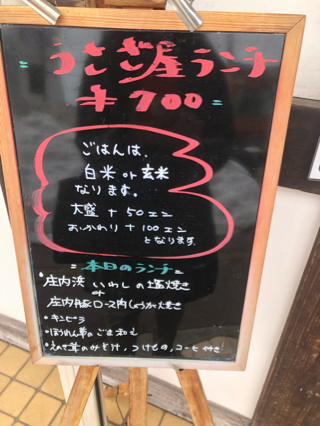 うさぎ屋ランチ
¥700
ごはんは、
白米 or 玄米
なります。
大盛 + 50エン
おかわり + 100エン
となります。
= 本日のランチ =
・庄内浜 いわしの塩焼き
or
庄内豚ロース肉しょうが焼き
・キンピラ
・ほうれん草のごま和え
・えのき茸のみそ汁,つけもの,コーヒー付き